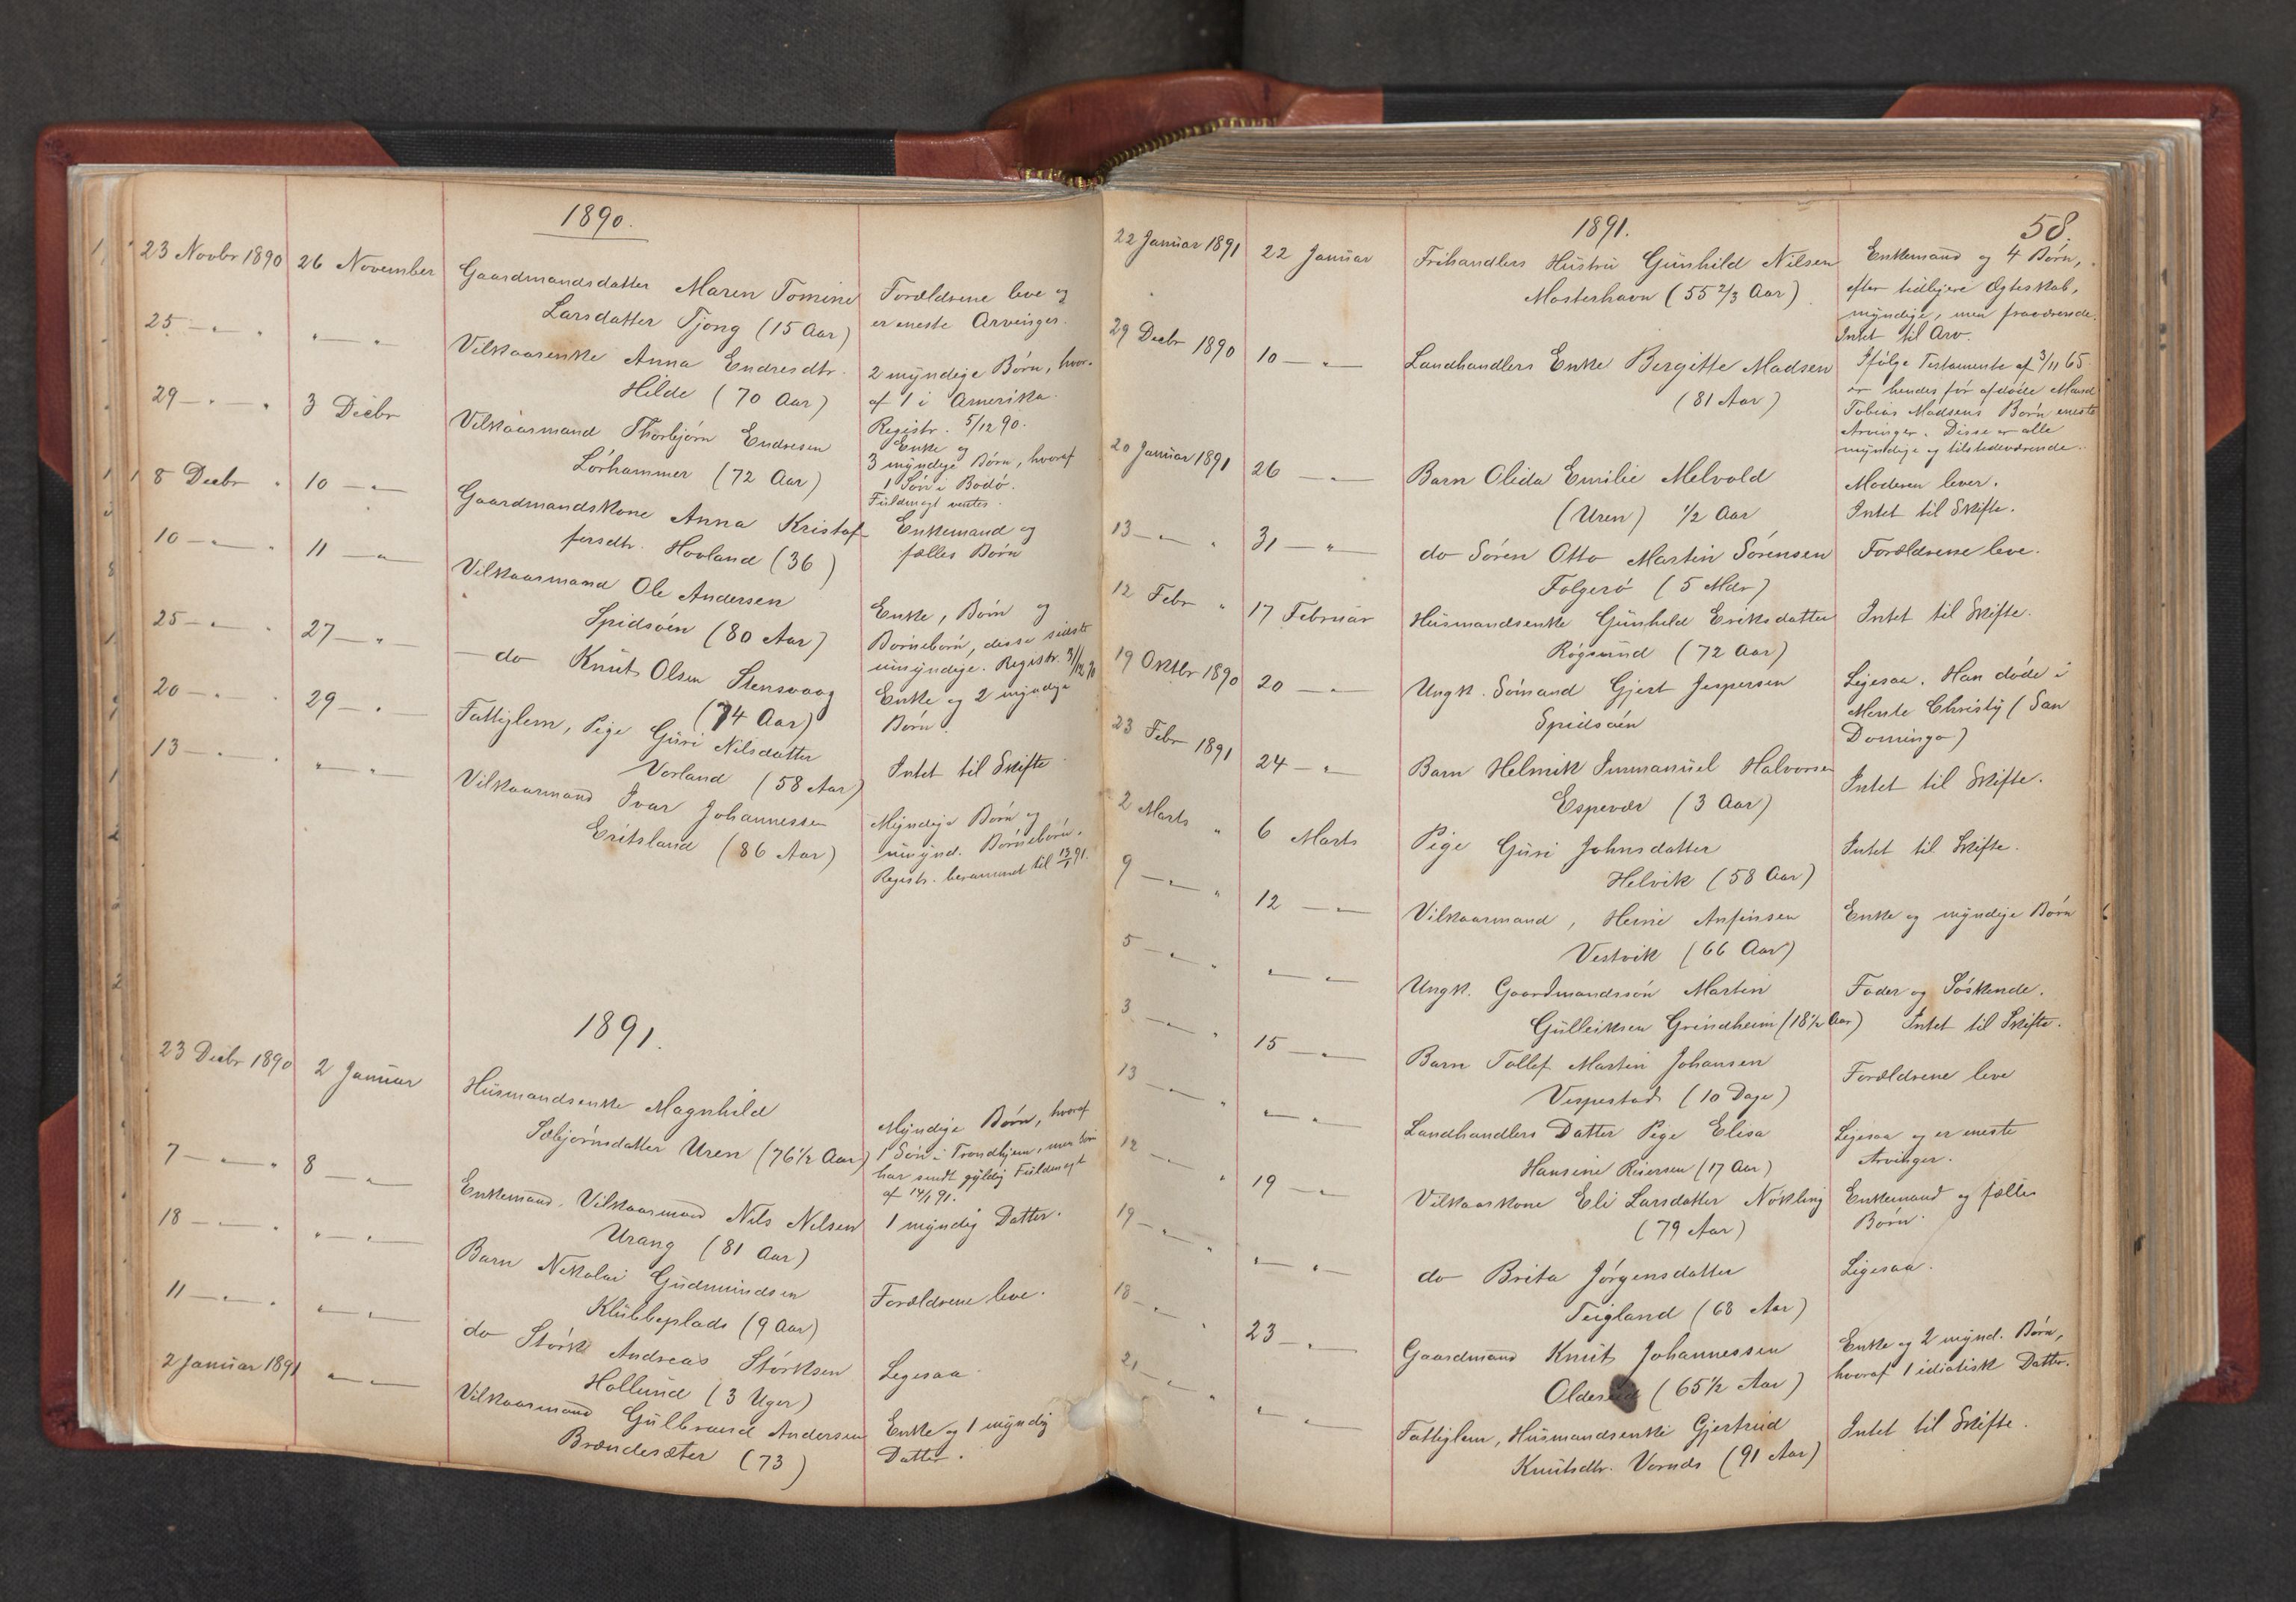 1890.
23 Novbr 1890 26 November Gaardmandsdatter Maren Tomine Forældrene leve og
Larsdatter Tjong (15 Aar) er eneste Arvinger.
25 — " — " " — " Vilkaarsenke Anna Endresdtr. 2 myndige Børn, hvor-
Hilde (70 Aar) af 1 i Amerika.
Registr. 5/12 90.
29 — " — " 3 Decbr Vilkaarmand Thorbjørn Endresen Enke og
Lørhammer (72 Aar) 3 myndige Børn, hvoraf
1 Søn i Bodø.
Fuldmagt ventes.
8 Decbr " 10 — " — Gaardmandskone Anna Kristof- Enkemand og
fersdtr. Hovland (36) fælles Børn
10 — " — " 11 — " Vilkaarmand Ole Andersen Enke, Børn og
Spidsøen (80 Aar) Børnebørn, disse sidste
umyndige. Registr. 31/12 90
25 — " — " 27 — " — do Knut Olsen Stensvaag Enke og 2 myndige
(74 Aar) Børn.
20 — " — " 29 — " — Fattiglem, Pige Guri Nilsdatter Intet til Skifte
Vorland (58 Aar)
13 — " — " " — " — Vilkaarmand Ivar Johannessen Myndige Børn og
Eritsland (86 Aar) umynd. Børnebørn.
Registr. berammet til 13/1 91.
1891.
23 Decbr 1890 2 Januar Husmandsenke Magnhild Myndige Børn, hvoraf
Sæbjørnsdatter Uren (76 1/2 Aar) 1 Søn i Trondhjem, men
har sendt gyldig Fuldmagt
af 14/1 91.
7 — " — " 8 — " — Enkemand, Vilkaarmand Nils Nilsen 1 myndig Datter.
Urang (81 Aar)
18 — " — " " — " — Barn Nikolai Gudmundsen Forældrene leve.
Klubbeplads (9 Aar)
11 — " — " " — " — do Størk Andreas Størksen Ligesaa
Hollund (3 Uger)
2 Januar 1891 " — " — Vilkaarmand Gulbrand Andersen Enke og 1 myndig
Brandesæter (73) Datter.
1891. 58.
22 Januar 1891 22 Januar Frihandlers Hustru Gunhild Nilsen Enkemand og 4 Børn,
Mosterhavn (55 2/3 Aar) efter tidligere Ægteskab,
myndige, men fraværende.
Intet til Arv.
29 Decbr 1890 10 — " — Landhandlers Enke Bergitte Madsen Ifølge Testamente af 3/11 65
(81 Aar) er hendes før afdøde Mand
Tobias Madsens Børn eneste
Arvinger. Disse er alle
myndige og tilstedeværende.
20 Januar 1891 26 — " — Barn Olida Emilie Melvold Moderen lever.
(Uren) 1/2 Aar Intet til Skifte.
13 — " — " 31 — " — do Søren Otto Martin Sørensen Forældrene leve.
Folgerø (5 Mdr)
12 Febr " 17 Februar Husmandsenke Gunhild Eriksdatter Intet til Skifte.
Røgsund (72 Aar)
19 Oktbr 1890 20 — " — Ungk. Sømand Gjert Jespersen Ligesaa. Han døde i
Spidsøen Monte Christy (San
Domingo)
23 Febr 1891 24 — " — Barn Helmik Immanuel Halvorsen Intet til Skifte.
Espevær (3 Aar)
2 Marts " 6 Marts Pige Guri Johnsdatter Intet til Skifte.
Helvik (58 Aar)
9 — " — " 12 — " — Vilkaarmand, Heine Anfinsen Enke og myndige Børn
Vestvik (66 Aar)
5 — " — " " — " — Ungk. Gaardmandssøn Martin Fader og Søskende.
Gulleiksen Grindheim (18 1/2 Aar) Intet til Skifte.
3 — " — " 15 — " — Barn Tollef Martin Johansen Forældrene leve
Vespestad (10 Dage)
13 — " — " " — " — Landhandlers Datter Pige Elisa Ligesaa og er eneste
Hansine Riisersen (17 Aar) Arvinger.
12 — " — " 19 — " — Vilkaarskone Eli Larsdatter Nøkling Enkemand og fælles
(79 Aar) Børn.
19 — " — " " — " — do Brita Jørgensdatter Ligesaa.
Teigland (68 Aar)
18 — " — " 23 — " — Gaardmand Knut Johannessen Enke og 2 mynd. Børn,
(65 1/2 Aar) hvoraf 1 idiotisk Datter.
21 — " — " " — " — Fattiglem, Husmandsenke Gjertrud Intet til Skifte.
Knutsdtr. Vornds (91 Aar)